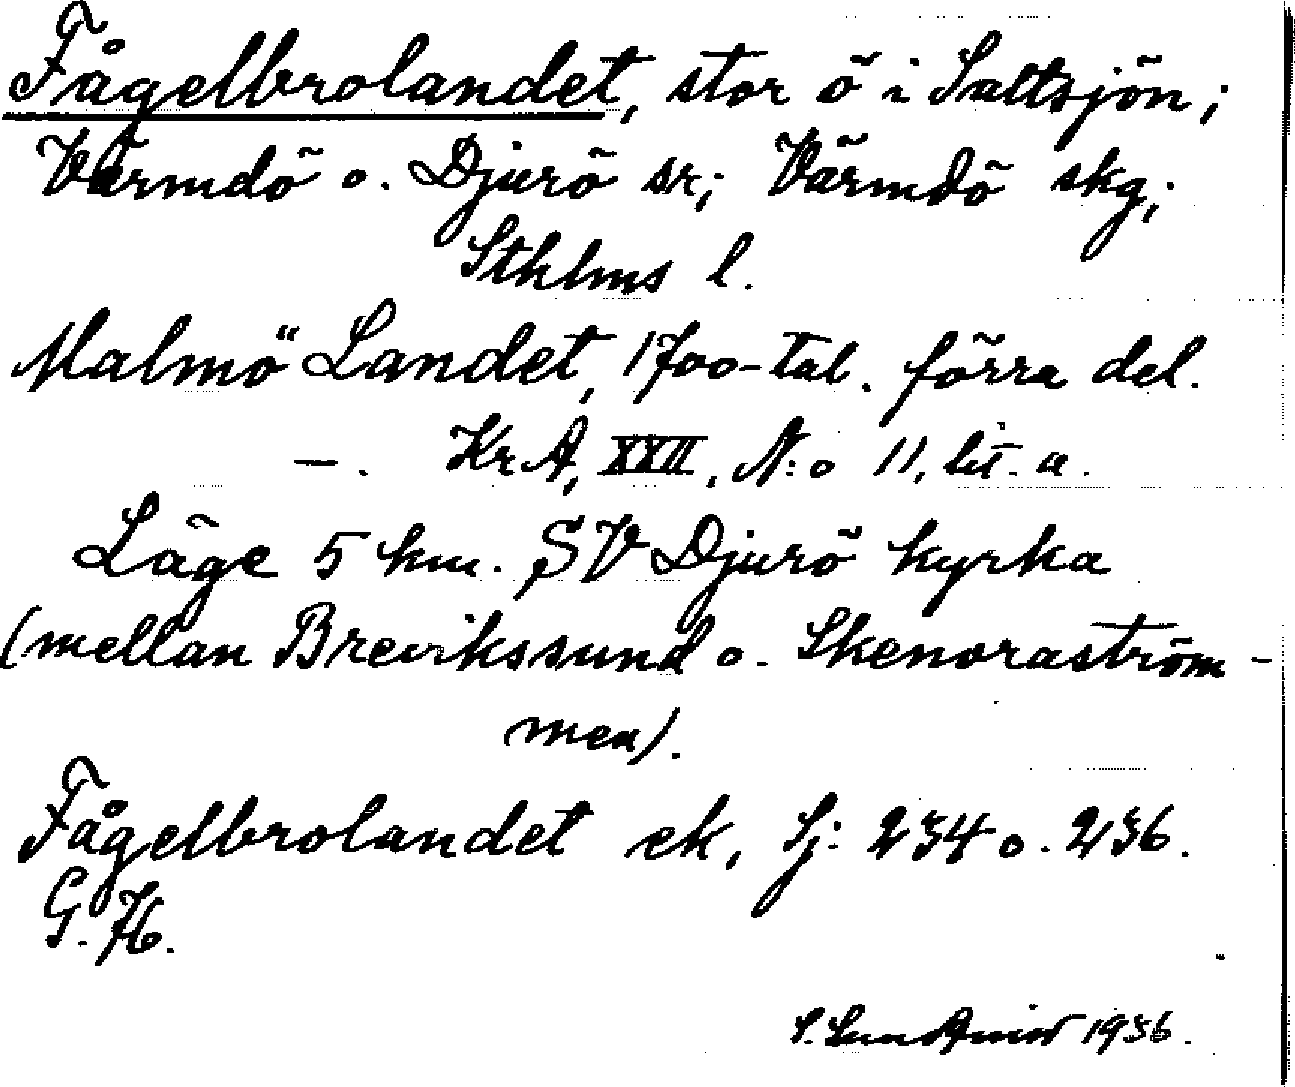 Fågelbrolandet, stor ö i Saltsjön;
Värmdö o. Djurö sn; Värmdö skg;
Sthlms l.
Malmö Landet, 1700-tal. förra del.
—. Kr A, XXII, N:o 11, lit. a.
Läge 5 km. SV Djurö kyrka
(mellan Brevikssund o. Skenoraström-
men).
Fågelbrolandet ek, Sj: 234 o. 236.
G. H.
S. 1936.